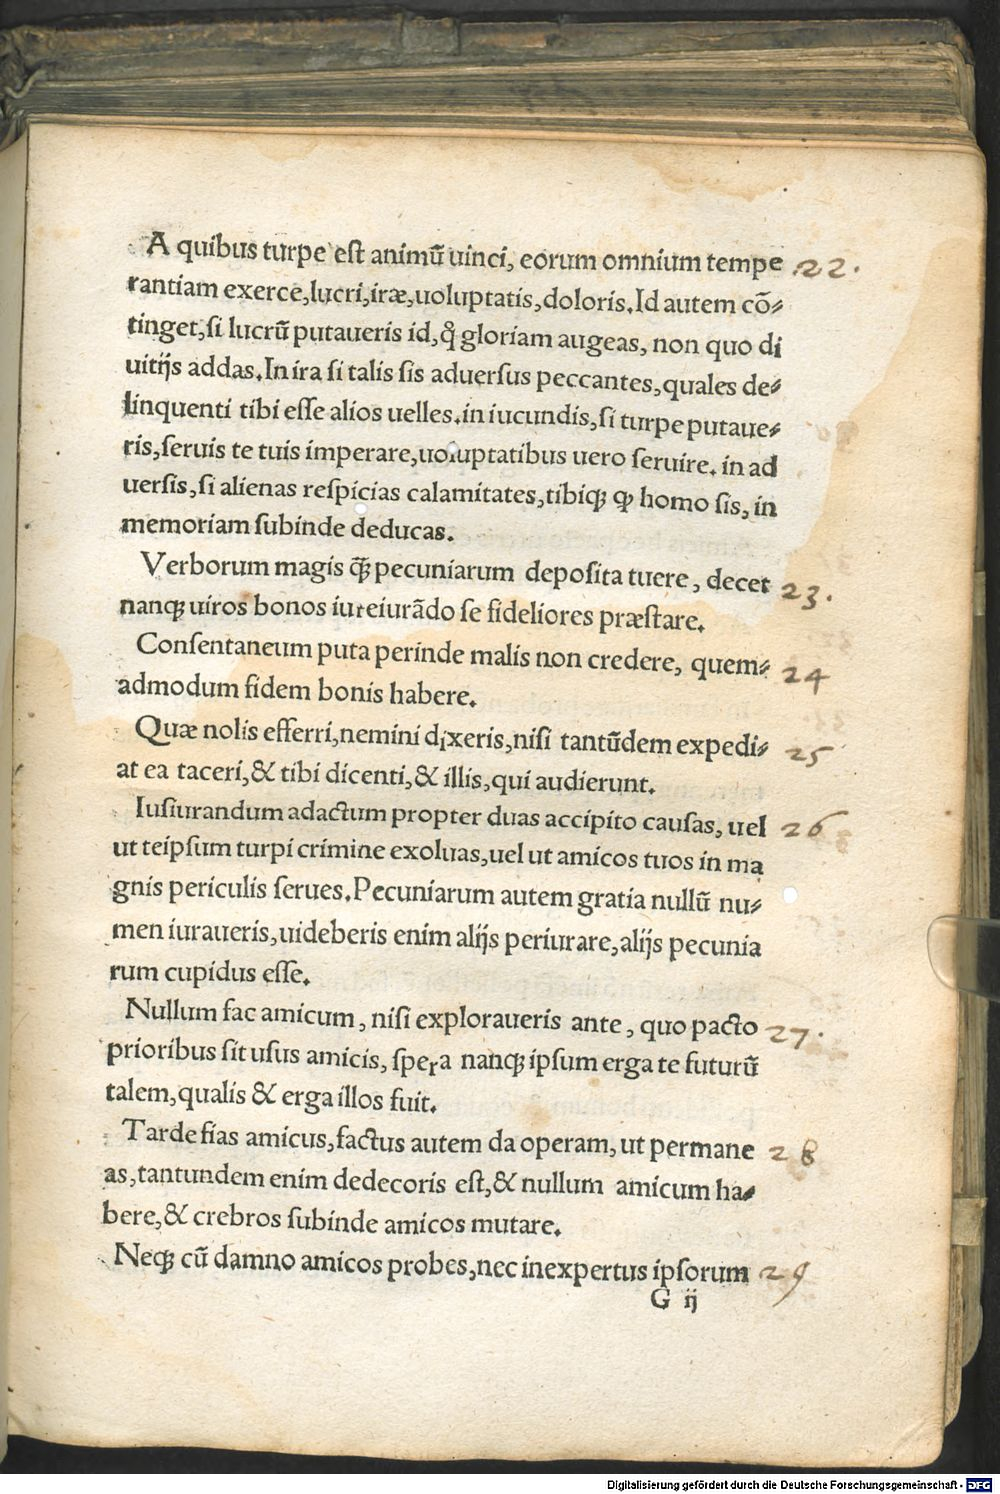 A quibus turpe est animū uinci, eorum omnium tempe 22.
rantiam exerce, lucri, iræ, uoluptatis, doloris. Id autem cō⸗
tinget, si lucrū putaueris id, ꝙ gloriam augeas, non quo di
uitijs addas. In ira si talis sis aduersus peccantes, quales de⸗
linquenti tibi esse alios uelles. in iucundis, si turpe putaue⸗
ris, seruis te tuis imperare, uoluptatibus uero seruire. in ad
uersis, si alienas respicias calamitates, tibiqꝫ ꝙ homo sis, in
memoriam subinde deducas.
Verborum magis ꝙ̄ pecuniarum deposita tuere, decet 23.
nanqꝫ uiros bonos iureiurādo se fideliores præstare.
Consentaneum puta perinde malis non credere, quem⸗ 24
admodum fidem bonis habere.
Quæ nolis efferri, nemini dixeris, nisi tantūdem expedi⸗ 25
at ea taceri, & tibi dicenti, & illis, qui audierunt.
Iusiurandum adactum propter duas accipito causas, uel 26
ut teipsum turpi crimine exoluas, uel ut amicos tuos in ma
gnis periculis serues. Pecuniarum autem gratia nullū nu⸗
men iuraueris, uideberis enim alijs periurare, alijs pecunia
rum cupidus esse.
Nullum fac amicum, nisi exploraueris ante, quo pacto 27.
prioribus sit usus amicis, spera nanqꝫ ipsum erga te futurū
talem, qualis & erga illos fuit.
Tarde fias amicus, factus autem da operam, ut permane 28
as, tantundem enim dedecoris est, & nullum amicum ha⸗
bere, & crebros subinde amicos mutare.
Neqꝫ cū damno amicos probes, nec inexpertus ipsorum 29
G ij
Digitalisierung gefördert durch die Deutsche Forschungsgemeinschaft - DFG